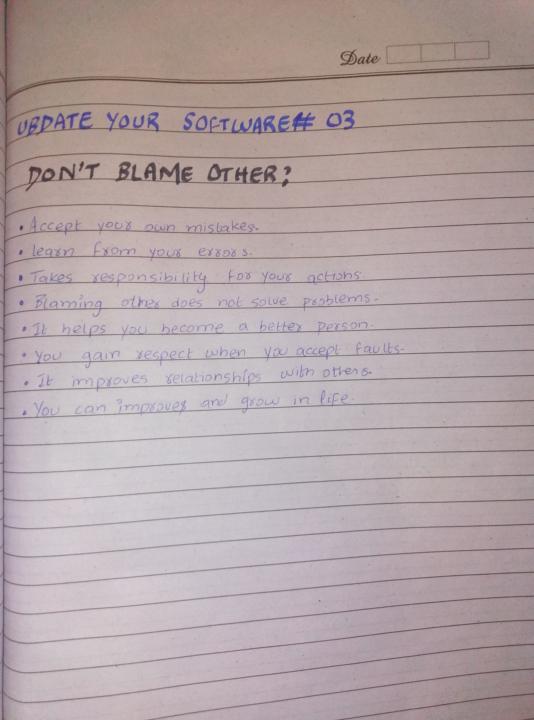 Date
UBDATE YOUR SOFTWARE# 03
DON'T BLAME OTHER?
• Accept your own mistakes.
• learn from your errors.
• Takes responsibility for your actions.
• Blaming other does not solve problems.
• It helps you become a better person.
• You gain respect when you accept faults.
• It improves relationships with others.
• You can improves and grow in life.